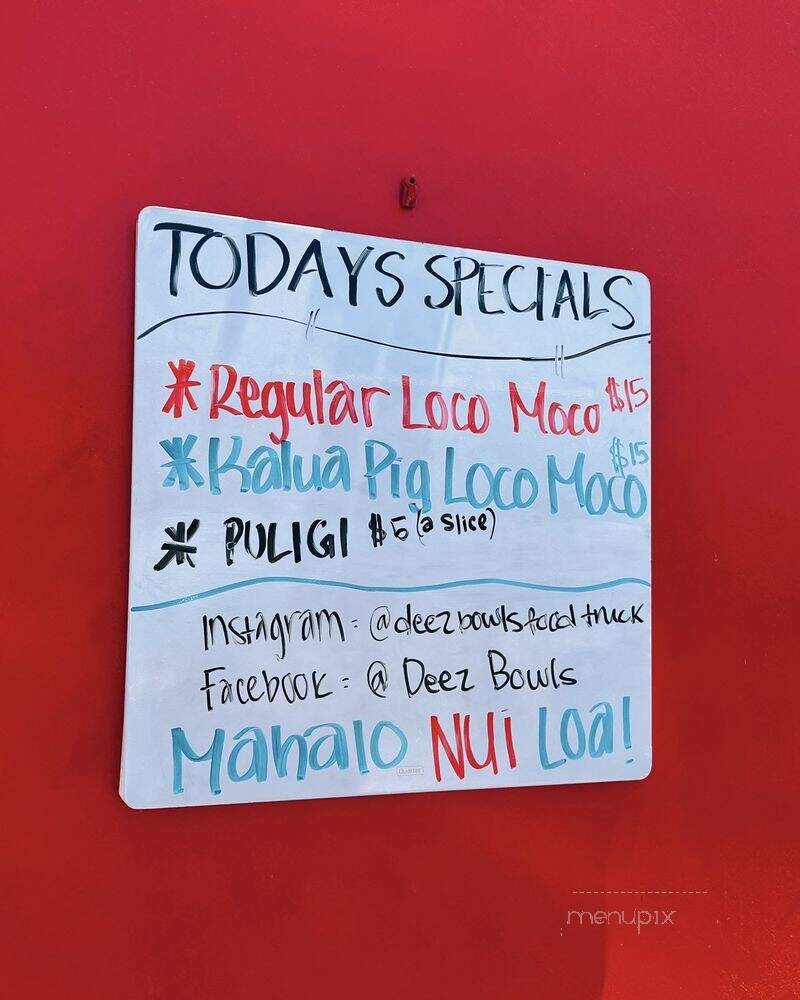 TODAYS SPECIALS
* Regular Loco Moco $15
* Kalua Pig Loco Moco $15
* PULIGI $5 (a slice)
Instagram: @deezbowlsfoodtruck
Facebook: @ Deez Bowls
Mahalo NUi Loa!
Quartet
menupix